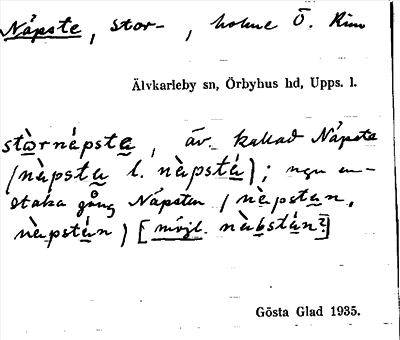 Nåpste, stor-, holme Ö. Rim
Älvkarleby sn, Örbyhus hd, Upps. l.
stòrnápsta, äv. kallad Nåpste
(nàpsta l. nàpstá); ngn en-
staka gång Nåpsten (nàpstan,
nàpstán) [möjl. nàbstán?]
Gösta Glad 1935.